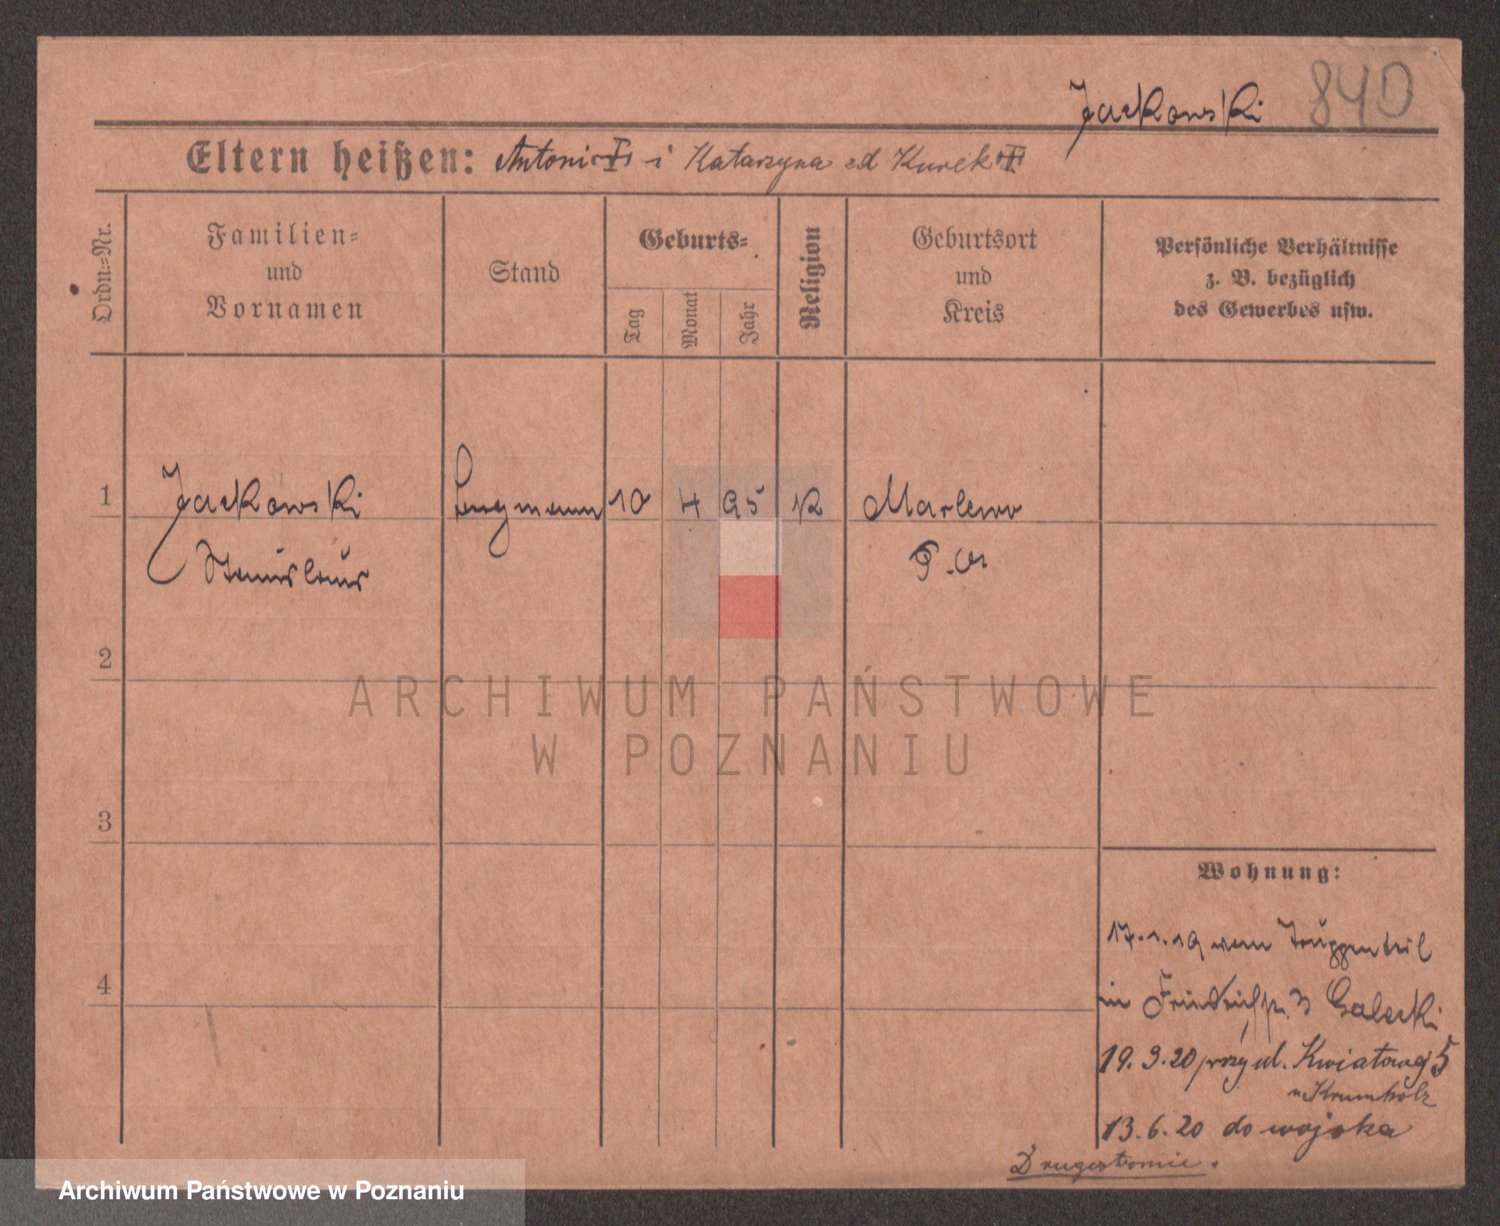 Jackowski 840
Eltern heißen: Antoni i Katarzyna zd Kurek
Ordn.=Nr.
Familien=
und
Vornamen
Stand
Geburts=
Tag
Monat
Jahr
Religion
Geburtsort
und
Kreis
Persönliche Verhältnisse
z. B. bezüglich
des Gewerbes usw.
1 Jackowski 10 4 95 K Marlewo
Stanislaus P. O.
2
3
4
ARCHIWUM PAŃSTWOWE
W POZNANIU
Wohnung:
17.1.19 vom Truppenteil
in Friedrichstr. 3 Galecki
19.3.20 przy ul. Kwiatowej 5
u Krumholz
13.6.20 do wojska
Drugostronnie.
Archiwum Państwowe w Poznaniu